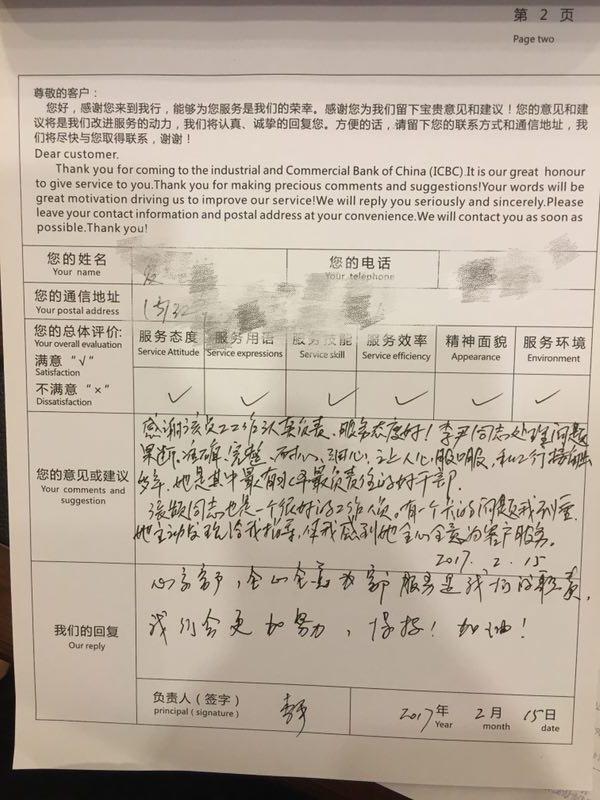 第 2 页
Page two
尊敬的客户：
您好，感谢您来到我行，能够为您服务是我们的荣幸。感谢您为我们留下宝贵意见和建议！您的意见和建
议将是我们改进服务的动力，我们将认真、诚挚的回复您。方便的话，请留下您的联系方式和通信地址，我
们将尽快与您取得联系，谢谢！
Dear customer.
Thank you for coming to the industrial and Commercial Bank of China (ICBC).It is our great honour
to give service to you.Thank you for making precious comments and suggestions!Your words will be
great motivation driving us to improve our service!We will reply you seriously and sincerely.Please
leave your contact information and postal address at your convenience.We will contact you as soon as
possible.Thank you!
您的姓名
Your name
您的电话
Your telephone
您的通信地址
Your postal address
您的总体评价:
Your overall evaluation
满意 “√”
Satisfaction
不满意 “×”
Dissatisfaction
服务态度
Service Attitude
服务用语
Service expressions
服务技能
Service skill
服务效率
Service efficiency
精神面貌
Appearance
服务环境
Environment
✓ ✓ ✓ ✓ ✓ ✓
您的意见或建议
Your comments and
suggestion
感谢该员工工作认真负责、服务态度好！李尹同志处理问题
果断、准确、完整、耐心、细心，让人心服口服，和工行接触
多年，她是其中最有水平最负责任的好干部。
张颖同志也是一个很好的工作人员。有一个卡的问题我不懂
她主动发现给我指导，使我感到她全心全意为客户服务。
2017. 2. 15
我们的回复
Our reply
全心全意为客户服务是我们的职责，
我们会更加努力，保持！加油！
负责人（签字）
principal (signature)
2017年 2月 15日
Year month date